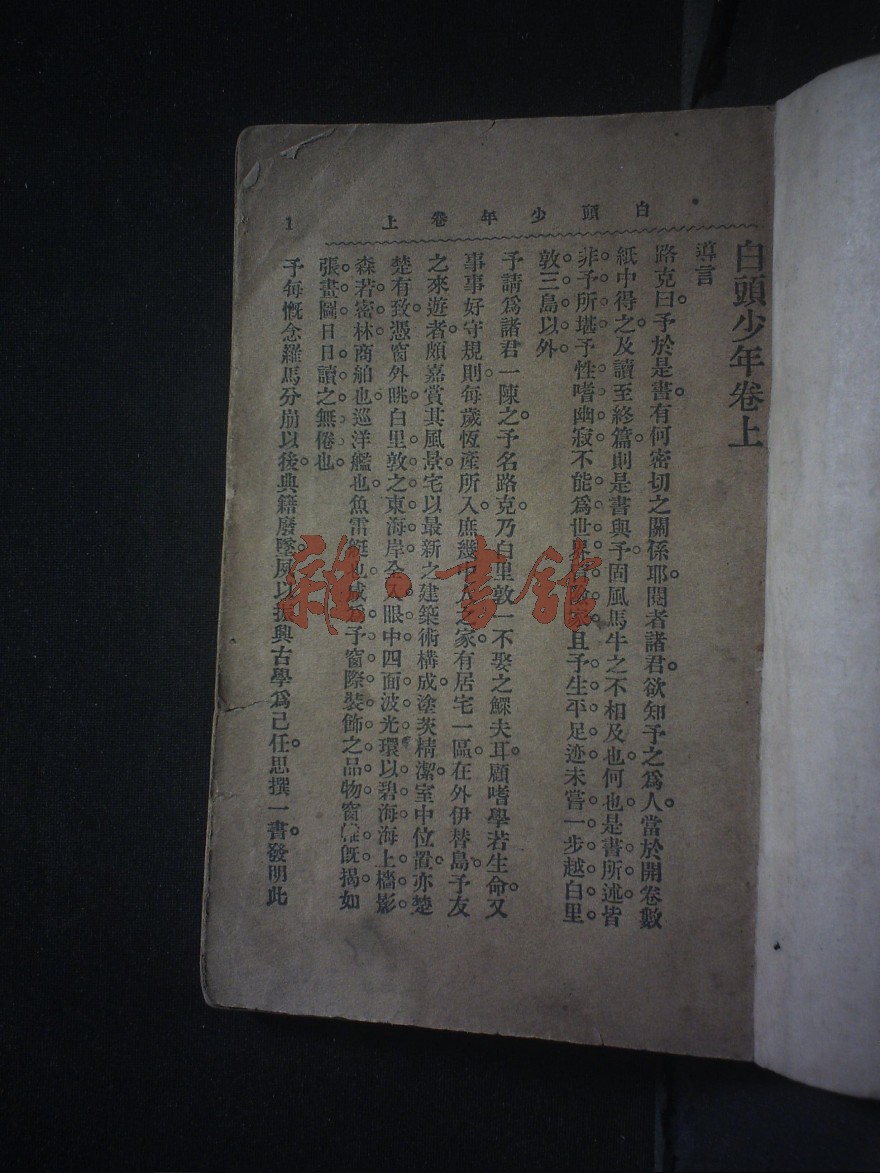 白頭少年卷上
白頭少年卷上
1
導言
路克曰。予於是書有何密切之關係耶。閱者諸君。欲知予之爲人。當於開卷數
紙中得之。及讀至終篇。則是書與予。固風馬牛之不相及也。何也。是書所述皆
非予所堪。予性嗜幽寂。不能爲世界冒險家。且予生平足迹。未嘗一步越白里
敦三島以外。
予請爲諸君一陳之。予名路克。乃白里敦一不娶之鰥夫耳。顧嗜學若生命。又
事事好守規則。每歲恆產所入。庶幾中人之家。有居宅一區。在外伊替島。予友
之來遊者。頗嘉賞其風景。宅以最新之建築術構成。塗茨精潔。室中位置。亦楚
楚有致。憑窗外眺。白里敦之東海岸。全入眼中。四面波光。環以碧海。海上檣影。
森若密林。商舶也。巡洋艦也。魚雷艇也。咸爲予窗際裝飾之品物。窗 旣揭。如
張畫圖。日日讀之無倦也。
予每慨念羅馬分崩以後。典籍廢墜。夙以振興古學爲己任。思撰一書。發明此
雜·書館